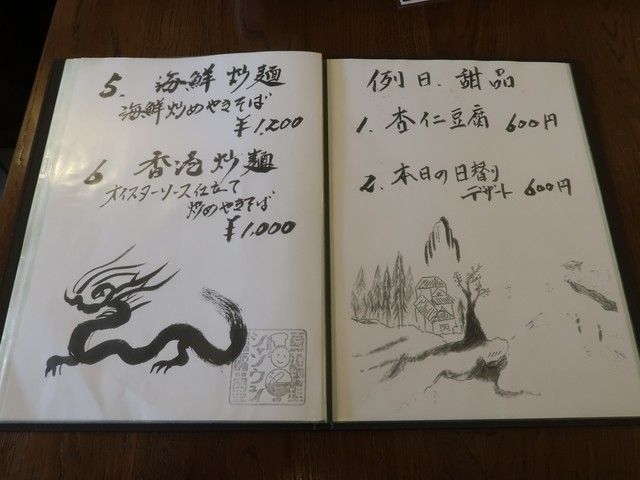 5. 海鮮炒麺
海鮮炒めやきそば
¥1,200
6 香港炒麺
オイスターソース仕立て
炒めやきそば
¥1,000
シャンウェイ
例日.甜品
1. 杏仁豆腐 600円
2. 本日の日替り
デザート 600円